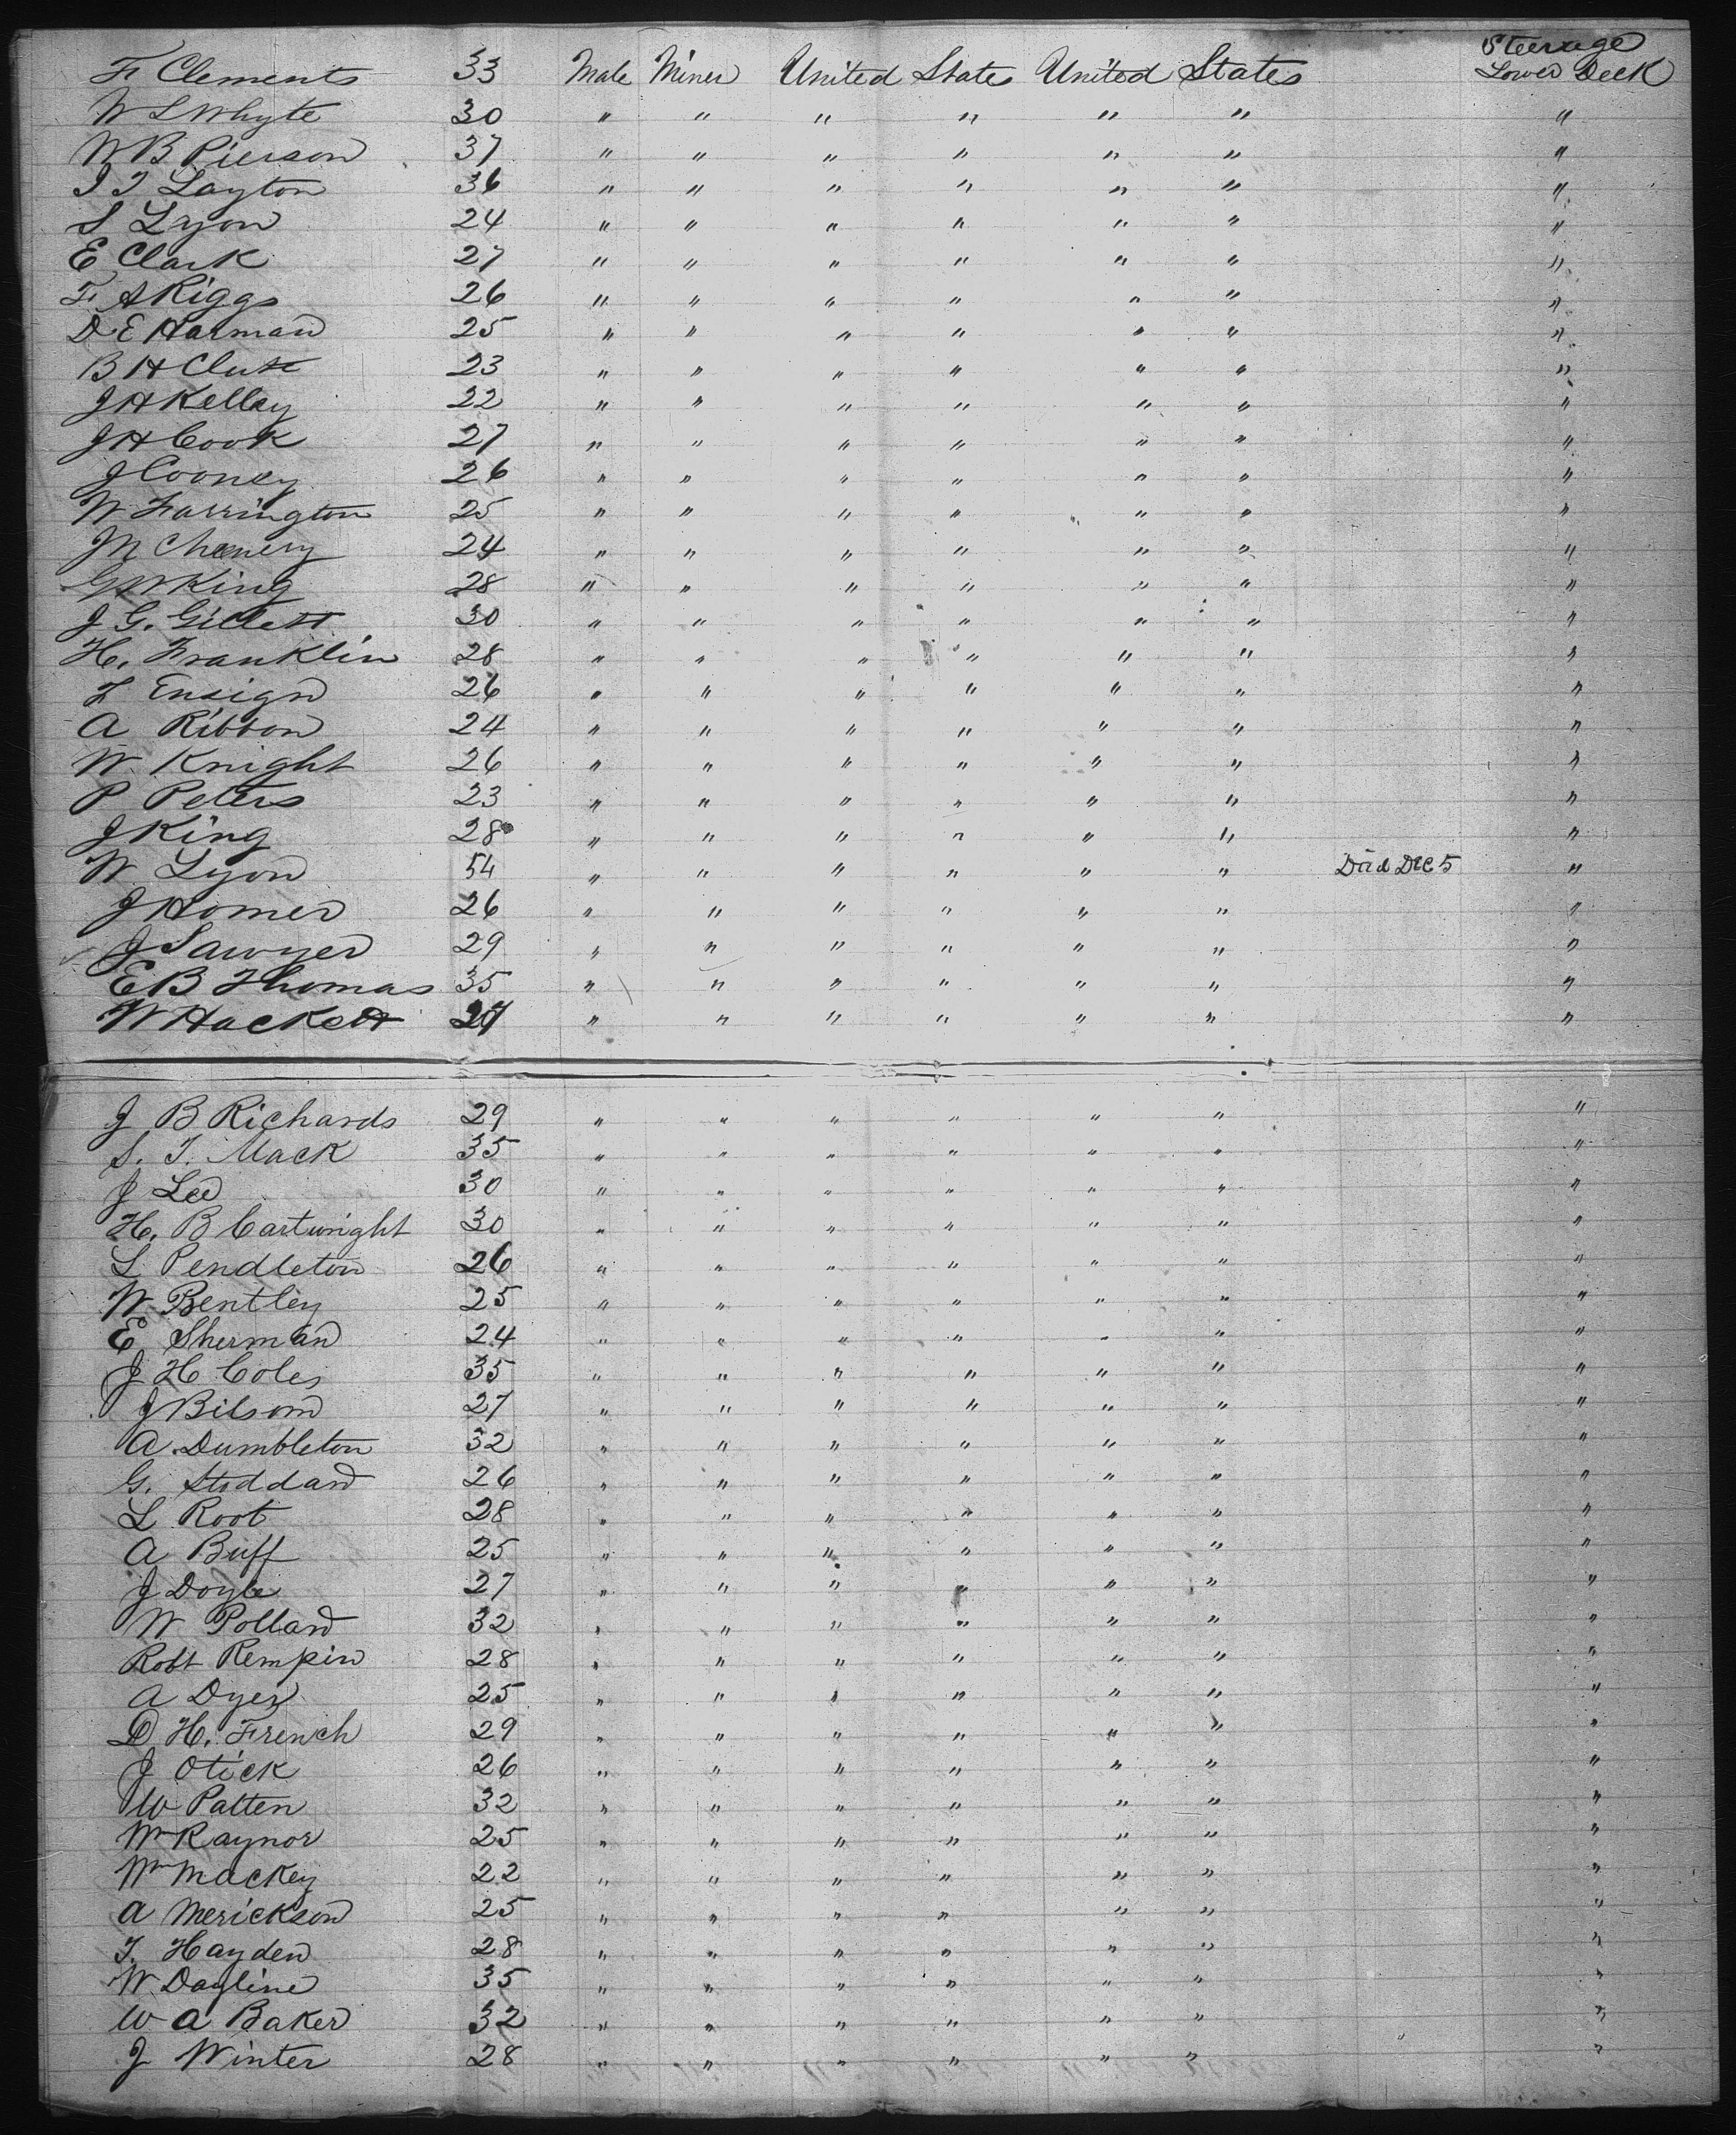 F. Clements 33 Male Miner United States United States Steerage Lower Deck
W S Whyte 30 " " " " " " "
W B Pierson 37 " " " " " " "
J T Layton 36 " " " " " " "
S Lyon 24 " " " " " " "
E Clark 27 " " " " " " "
F. A Riggs 26 " " " " " " "
D E Harman 25 " " " " " " "
B H Clute 23 " " " " " " "
J H Kelley 22 " " " " " " "
J H Cook 27 " " " " " " "
J Cooney 26 " " " " " " "
W Farrington 25 " " " " " " "
J M Cheenery 24 " " " " " " "
G W King 28 " " " " " " "
J G. Gillett 30 " " " " " " "
H. Franklin 28 " " " " " " "
L Ensign 26 " " " " " " "
A Ribbon 24 " " " " " " "
W. Knight 26 " " " " " " "
P Peters 23 " " " " " " "
J King 28 " " " " " " "
W Lyon 54 " " " " " " Died Dec 5 "
J Homer 26 " " " " " " "
J Sawyer 29 " " " " " " "
E B Thomas 35 " " " " " " "
W Hackett 27 " " " " " " "
J B Richards 29 " " " " " " "
S. T. Mack 35 " " " " " " "
J Lee 30 " " " " " " "
H. B Cartwright 30 " " " " " " "
L Pendleton 26 " " " " " " "
W. Bentley 25 " " " " " " "
E Sherman 24 " " " " " " "
J H Coles 35 " " " " " " "
J Bilsom 27 " " " " " " "
A. Dumbleton 32 " " " " " " "
G. Stoddard 26 " " " " " " "
L. Root 28 " " " " " " "
A Buff 25 " " " " " " "
J Doyle 27 " " " " " " "
W Pollard 32 " " " " " " "
Robt Rempin 28 " " " " " " "
A Dyer 25 " " " " " " "
D H. French 29 " " " " " " "
J Otick 26 " " " " " " "
W Patten 32 " " " " " " "
Wm Raynor 25 " " " " " " "
Wm Mackey 22 " " " " " " "
A Merickson 25 " " " " " " "
T. Hayden 28 " " " " " " "
W. Dayline 35 " " " " " " "
W A Baker 32 " " " " " " "
J Winter 28 " " " " " " "